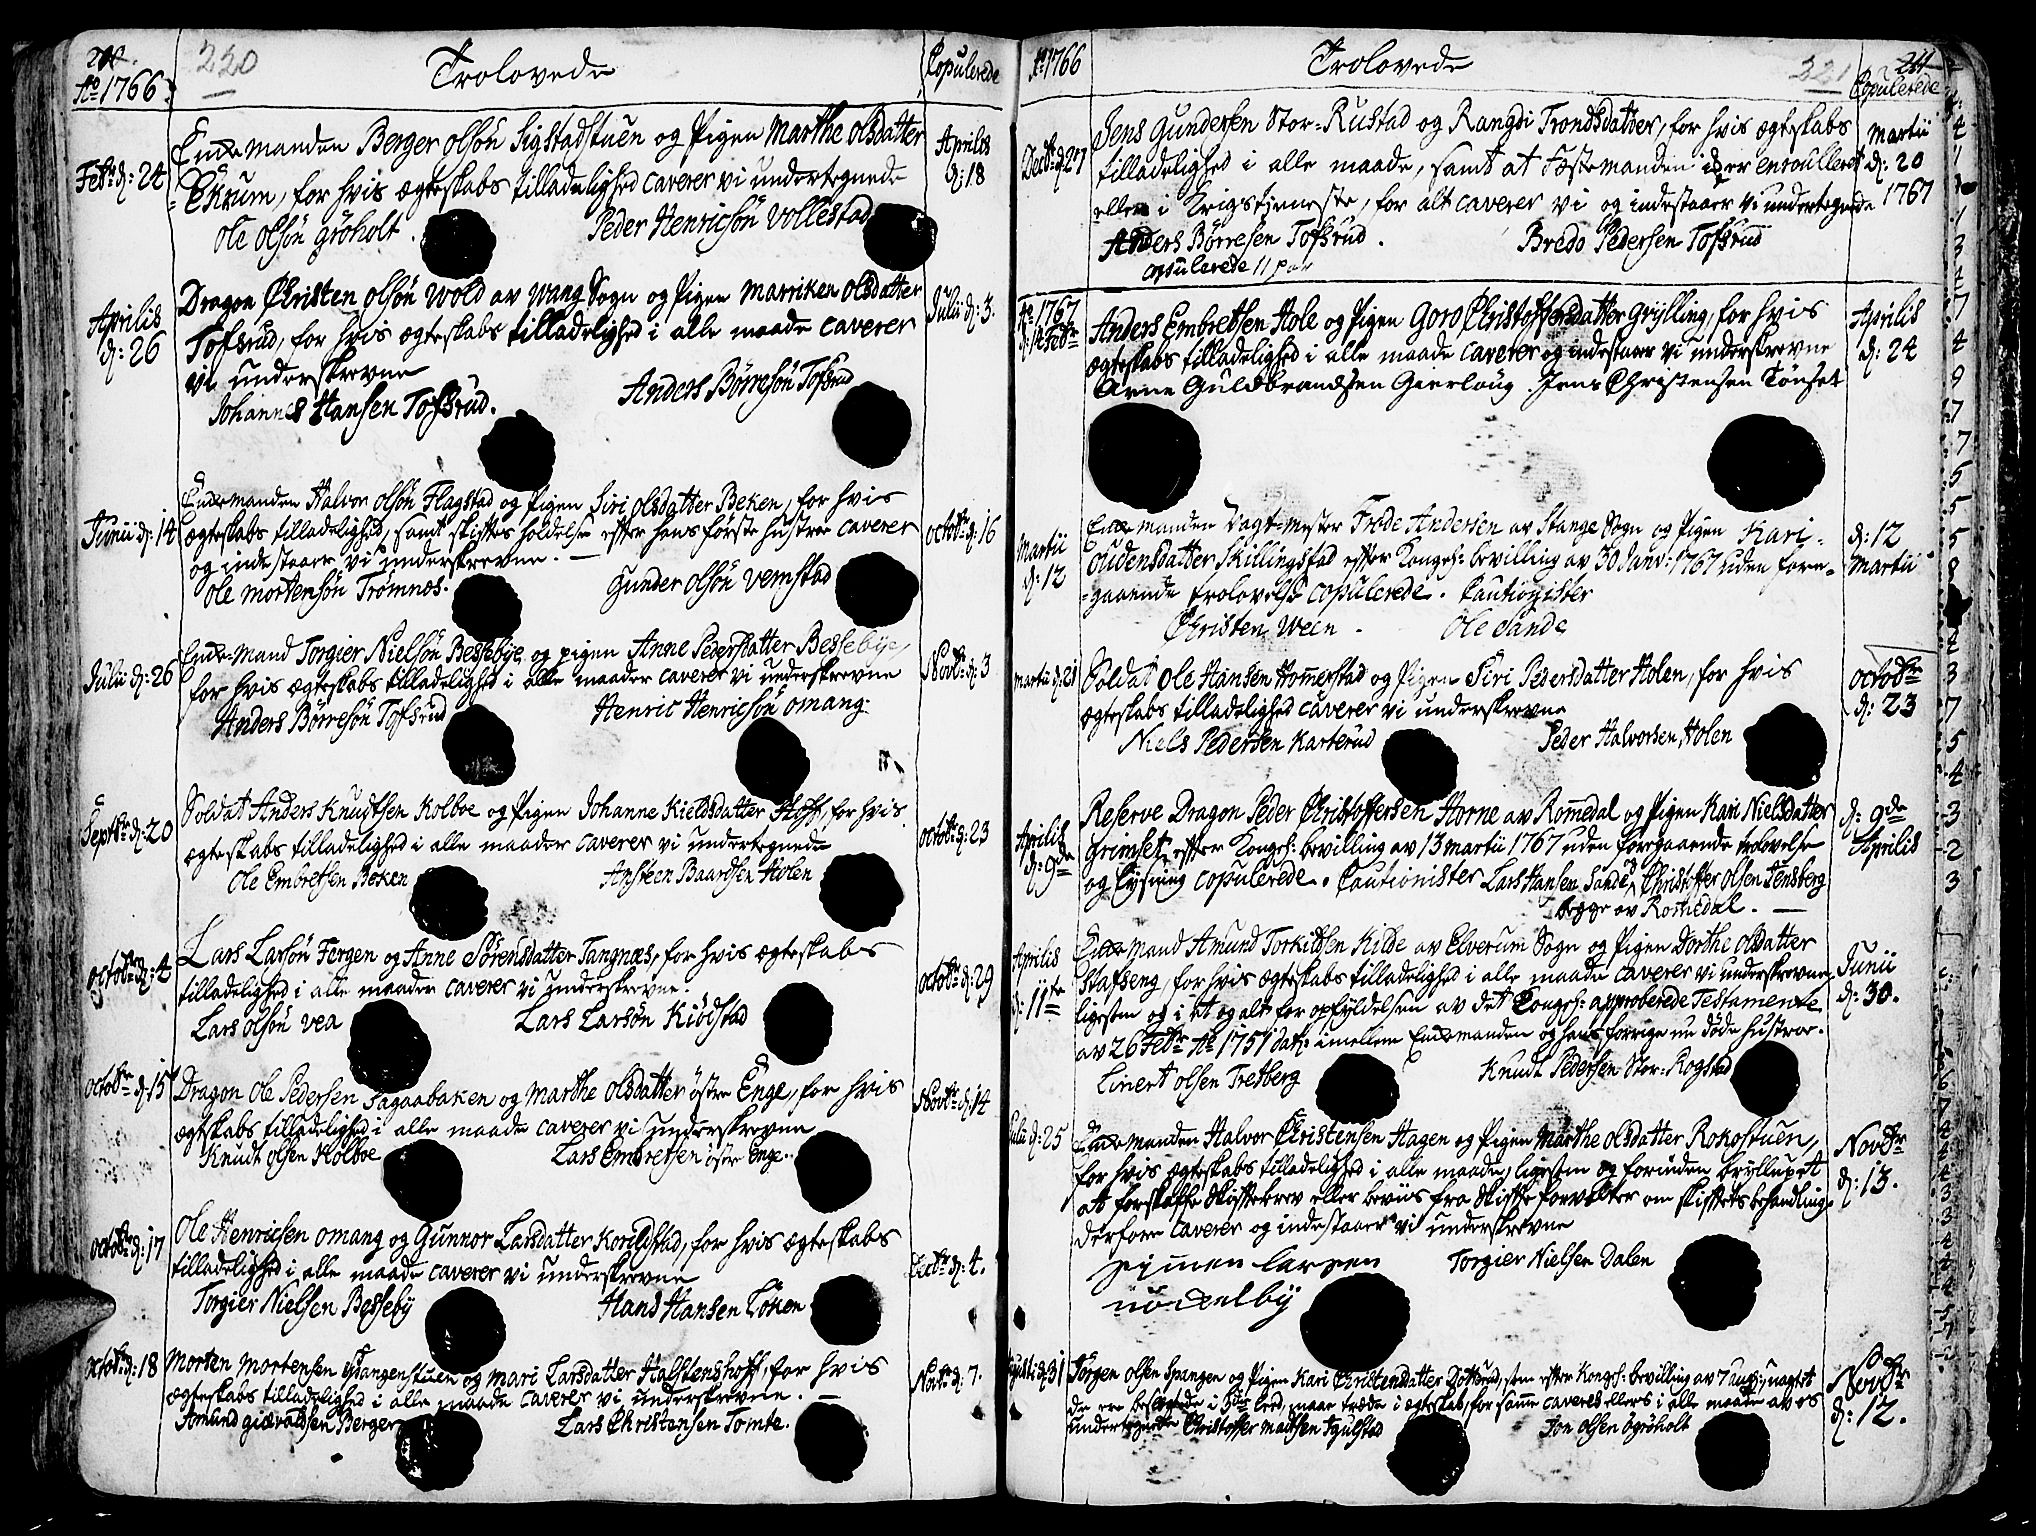 220
Ao 1766
Trolovede
Copulerede
Febr. d: 24
Enckemanden Berger olsön Sigstadstuen og Pigen Marthe olsdatter
Ekrum, for hvis ægteskabs tilladelighed caverer vi undertegnede
Ole olsön gröholt. Peder Henricsön Vollestad
Aprilis
d: 18
Aprilis
d: 26
Dragon Christen olsön Wold av Wang Sogn og Pigen Marriken olsdatter
Tofsrud, for hvis ægteskabs tilladelighed i alle maade caverer
vi underskrevne
Johannes Hansen Tofsrud. Anders Börresön Tofsrud
Julii d: 3.
Junii d: 14
Enckemanden Halvor olsön Flagstad og Pigen Siri olsdatter Beken, for hvis
ægteskabs tilladelighed, samt skiftes holdelse efter hans förste hustroe caverer
og indestaaer vi underskrevne.
Ole Mortensön Trömnes. Gunder olsön Vemstad
octobr d: 16
Julii d: 26
Encke-Mand Torgier Nielsön Bessebye og pigen Anne Pedersdatter Bessebye,
for hvis ægteskabs tilladelighed i alle maader caverer vi underskrevne
Anders Börresön Tofsrud Henric Henricsön omang:
Novbr d: 3
Septbr d: 20
Soldat Anders Knudtsen Kolboe og Pigen Johanne Kieldsdatter Hoff, for hvis
ægteskabs tilladelighed i alle maader caverer vi undertegnede
Ole Embretsen Beken Ansteen Baardsen Holen
octobr d: 23
octobr d: 4
Lars Larsön Fergen og Anne Sörensdatter Tangnæs, for hvis ægteskabs
tilladelighed i alle maader caverer vi underskrevne.
Lars olsön vea Lars Larsön Kiödstad
octobr d: 29
octobr d: 15
Dragon Ole Pedersen Sagaabaken og Marthe olsdatter östre Enge, for hvis
ægteskabs tilladelighed i alle maade caverer vi underskrevne
Knudt olsen Kolboe Lars Embretsen östre Enge.
Novbr d: 14
octobr d: 17
Ole Henricsen omang og Gunnor Larsdatter Korildstad, for hvis ægteskabs
tilladelighed i alle maade caverer vi underskrevne
Torgier Nielsen Besseby Hans Hansen Löken
Decbr d: 4.
octobr d: 18
Morten Mortensen Spangenstuen og Mari Larsdatter Halstenshoff, for hvis
ægteskabs tilladelighed i alle maade caverer vi underskrevne.
Berger Lars Christensen Tomte.
Novbr d: 7.
Ao 1766
Trolovede
221
211
Copulerede
Decbr d: 27
Jens Gundersen Stor-Rustad og Rangdi Trondsdatter, for hvis ægteskabs
tilladelighed i alle maade, samt at Fæstemanden er enroulleret
eller i Krigstieneste, for alt caverer vi og indestaaer vi undertegnede
Anders Börresen Tofsrud. Bredo Pedersen Tofsrud
copulerede 11 par
Martii
d: 20
1767
Ao 1767
Febr
Anders Embretsen Hole og Pigen Goro Christoffersdatter Grylling, for hvis
ægteskabs tilladelighed i alle maade caverer og indestaaer vi underskrevne
Arne Guldbrandsen Gierloug Jens Christensen Tönset
Aprilis
d: 24
Martii
d: 12
Enckemanden Vagt-Mester Frode Andersen av Stange Sogn og Pigen Kari
oudensdatter Skillingstad efter Kongel: bevilling av 30 Janv: 1767 uden fore-
-gaaende trolovelse copulerede. Cautionister
Christen Ween. Ole Sande
d: 12
Martii
Martii d: 21
Soldat Ole Hansen Homerstad og Pigen Siri Pedersdatter Holen, for hvis
ægteskabs tilladelighed caverer vi underskrevne
Niels Pedersen Karterud Peder Halvorsen Holen
octobr
d: 23
Aprilis
d: 9de
Reserve Dragon Peder Christoffersen Horne av Romedal og Pigen Kari Nielsdatter
Grimset efter Kongel: bevilling av 13 Martii 1767 uden foregaaende trolovelse
og Lysning copulerede. Cautionister Lars Hansen Sande og Christoffer Olsen Tensberg
begge av Romedal.
d: 9de
Aprilis
Aprilis
d: 11te
Enckemand Amund Torkildsen Kilde av Elverum Sogn og Pigen Dorthe olsdatter
Stafseng, for hvis ægteskabs tilladelighed i alle maade caverer vi underskrevne,
ligesom og i et og alt for opfyldelsen av det Kongel: approberede Testamente
av 26 Febr Ao 1751 dat: imellem Enckemanden og hans forrige nu döde hustroe.
Livert olsen Tretberg Knudt Pedersen Stor-Rogstad
Junii
d: 30.
Julii d: 25
Enckemanden Halvor Christensen Hagen og Pigen Marthe olsdatter Rokostuen,
for hvis ægteskabs tilladelighed i alle maade, ligesom og forinden brylluppet
at forskaffe skiftebrev eller beviis fra skifteforvalter om skiftets behandling,
derfore caverer og indestaaer vi underskrevne
Seimen larsen Torgier Nielsen Dalen
nordelby
Novbr
d: 13.
Augusti d: 31
Jörgen olsen Spangen og Pigen Kari Christensdatter Döttrud, som efter Kongel: bevilling av 7 aug: uagtet
de ere beslegtede i 3die Leed, maae træde i ægteskab, for samme caveres ellers i alle maade av os
undertegnede Christoffer Madtsen Fgulstad Jon olsen ögröholt
Novbr
d: 12.